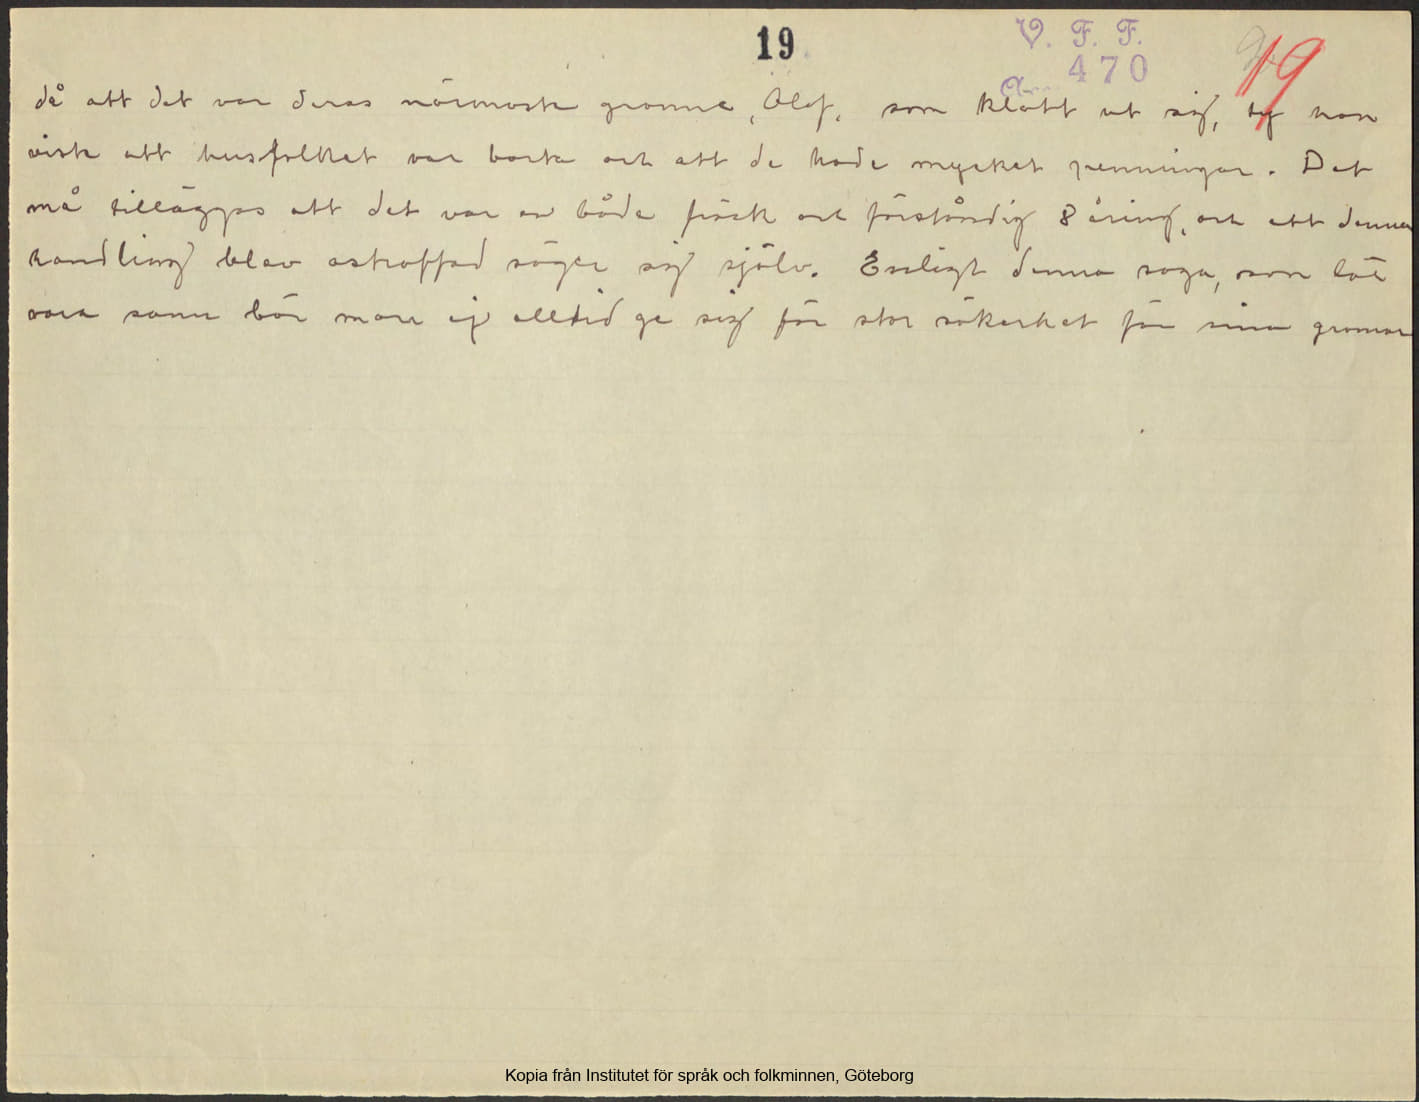 19
V. F. F.
470
19
då att det var deras närmaste granne, Olof, som klätt ut sig, ty han
viste att husfolket var borta och att de hade mycket penningar. Det
må tilläggas att det var en både fräck och förståndig 8 åring, och att denna
handling blev ostraffad säger sig själv. Enligt denna saga, som lär
vara sann bör man ej alltid ge sig för stor säkerhet för sina grannar
Kopia från Institutet för språk och folkminnen, Göteborg